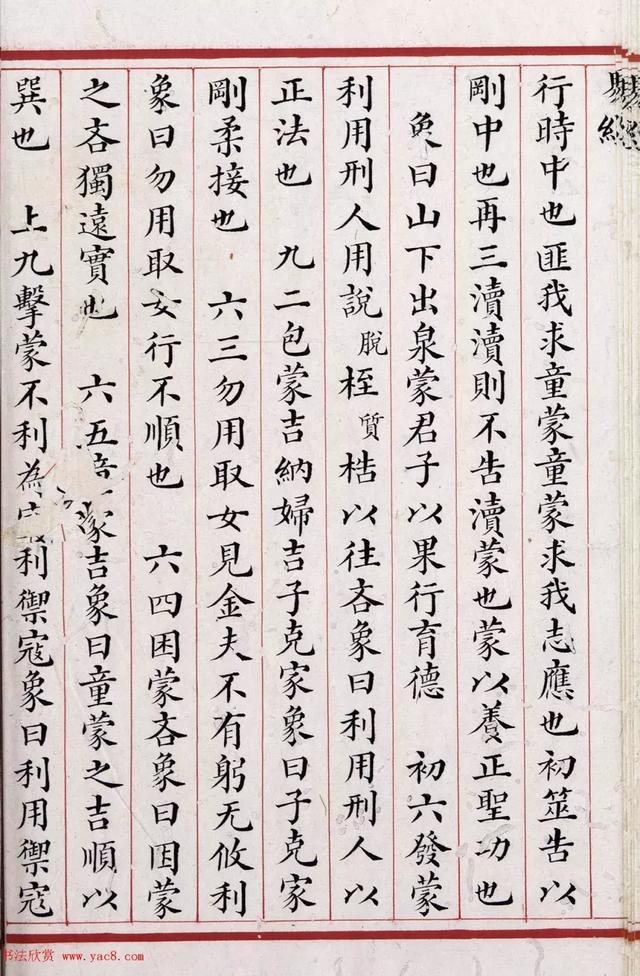 行時中也匪我求童蒙童蒙求我志應也初筮告以
剛中也再三瀆瀆則不告瀆蒙也蒙以養正聖功也
象曰山下出泉蒙君子以果行育德 初六發蒙
利用刑人用說脫桎質梏以往吝象曰利用刑人以
正法也 九二包蒙吉納婦吉子克家象曰子克家
剛柔接也 六三勿用取女見金夫不有躬无攸利
象曰勿用取女行不順也 六四困蒙吝象曰困蒙
之吝獨遠實也 六五蒙吉象曰童蒙之吉順以
巽也 上九擊蒙不利為利禦寇象曰利用禦寇
书法欣赏 www.yac8.com